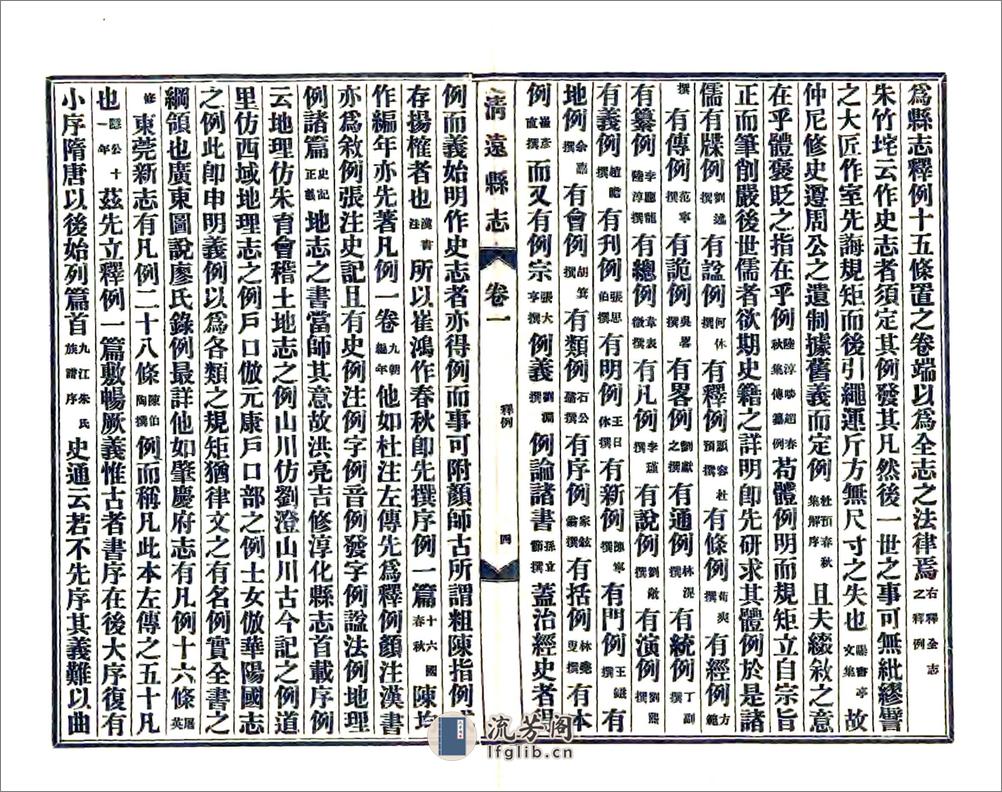 為縣志釋例十五條置之卷端以為全志之法律焉右釋全志之釋例
朱竹垞云作史志者須定其例發其凡然後一世之事可無紕繆譬
之大匠作室先誨規矩而後引繩運斤方無尺寸之失也曝書亭文集故
仲尼修史遵周公之遺制據舊義而定例杜預春秋集解序且夫綴敘之意
在乎體褒貶之指在乎例陸淳啖趙春秋集傳纂例苟體例明而規矩立自宗旨
正而筆削嚴後世儒者欲期史籍之詳明即先研求其體例於是諸
儒有牒例劉逖撰有諡例何休撰有釋例潁容杜預有條例荀爽撰有經例方範
撰有傳例范寧撰有詭例吳畧撰有畧例劉獻之撰有通例林湜撰有統例丁副
有纂例李應龍陸淳撰有總例韋表微撰有凡例李瑾撰有說例劉敞撰有演例劉熙
有義例趙瞻撰有刊例張思伯撰有明例王日休撰有新例陳寧撰有門例王鎡有
地例余嘉撰有會例胡箕撰有類例石公孺撰有序例家鉉翁撰有括例林堯叟撰有本
例崔彥直撰而又有例宗張大亨撰例義劉淵撰例論諸書孫立節撰蓋治經史者得
清遠縣志 卷一 釋例 四
例而義始明作史志者亦得例而事可附顏師古所謂粗陳指例式
存揚榷者也漢書注所以崔鴻作春秋即先撰序例一篇十六國春秋陳均
作編年亦先著凡例一卷九朝編年他如杜注左傳先為釋例顏注漢書
亦為敘例張注史記且有史例注例字例音例發字例諡法例地理
例諸篇史記正義地志之書當師其意故洪亮吉修淳化縣志首載序例
云地理仿朱育會稽土地志之例山川仿劉澄山川古今記之例道
里仿西域地理志之例戶口倣元康戶口部之例士女倣華陽國志
之例此即申明義例以為各類之規矩猶律文之有名例實全書之
綱領也廣東圖說廖氏錄例最詳他如肇慶府志有凡例十六條屠英
修東莞新志有凡例二十八條陳伯陶撰例而稱凡此本左傳之五十凡
也隱公十一年茲先立釋例一篇敷暢厥義惟古者書序在後大序復有
小序隋唐以後始列篇首九江朱氏族譜序史通云若不先序其義難以曲
流芳阁
lfglib.cn